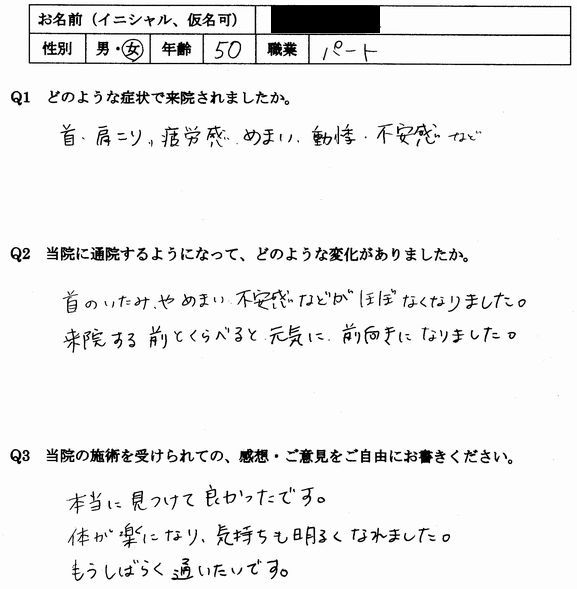 お名前（イニシャル、仮名可）
性別 男・女 年齢 50 職業 パート
Q1 どのような症状で来院されましたか。
首・肩こり、疲労感、めまい、動悸・不安感など
Q2 当院に通院するようになって、どのような変化がありましたか。
首のいたみやめまい、不安感などがほぼなくなりました。
来院する前とくらべると元気に、前向きになりました。
Q3 当院の施術を受けられての、感想・ご意見をご自由にお書きください。
本当に見つけて良かったです。
体が楽になり、気持ちも明るくなれました。
もうしばらく通いたいです。